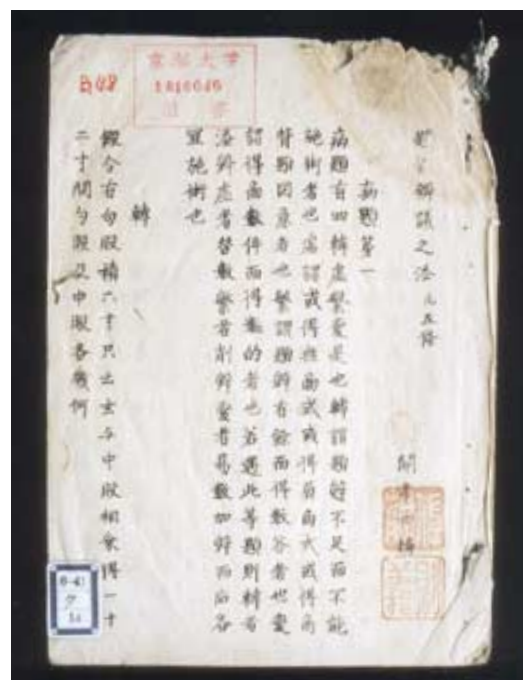 京都大学
1816046
図書
題術辨議之法 凡五條
關孝和編
病題第一
病題有四轉虚繁變是也轉謂題辞不足而不能
施術者也虚謂或得無商式或得負商式或得商
替題因乗者也繁謂題辞有餘而得数答者也變
謂得商数件而得数的者也若遇此等題則轉者
添辞虚者替数繁者削辞變者易数加辞而后各
宜施術也
轉
假令有勾股積六寸只云玄与中股相乗得一十
二寸問勾股及中股各幾何
6-41
ク
14